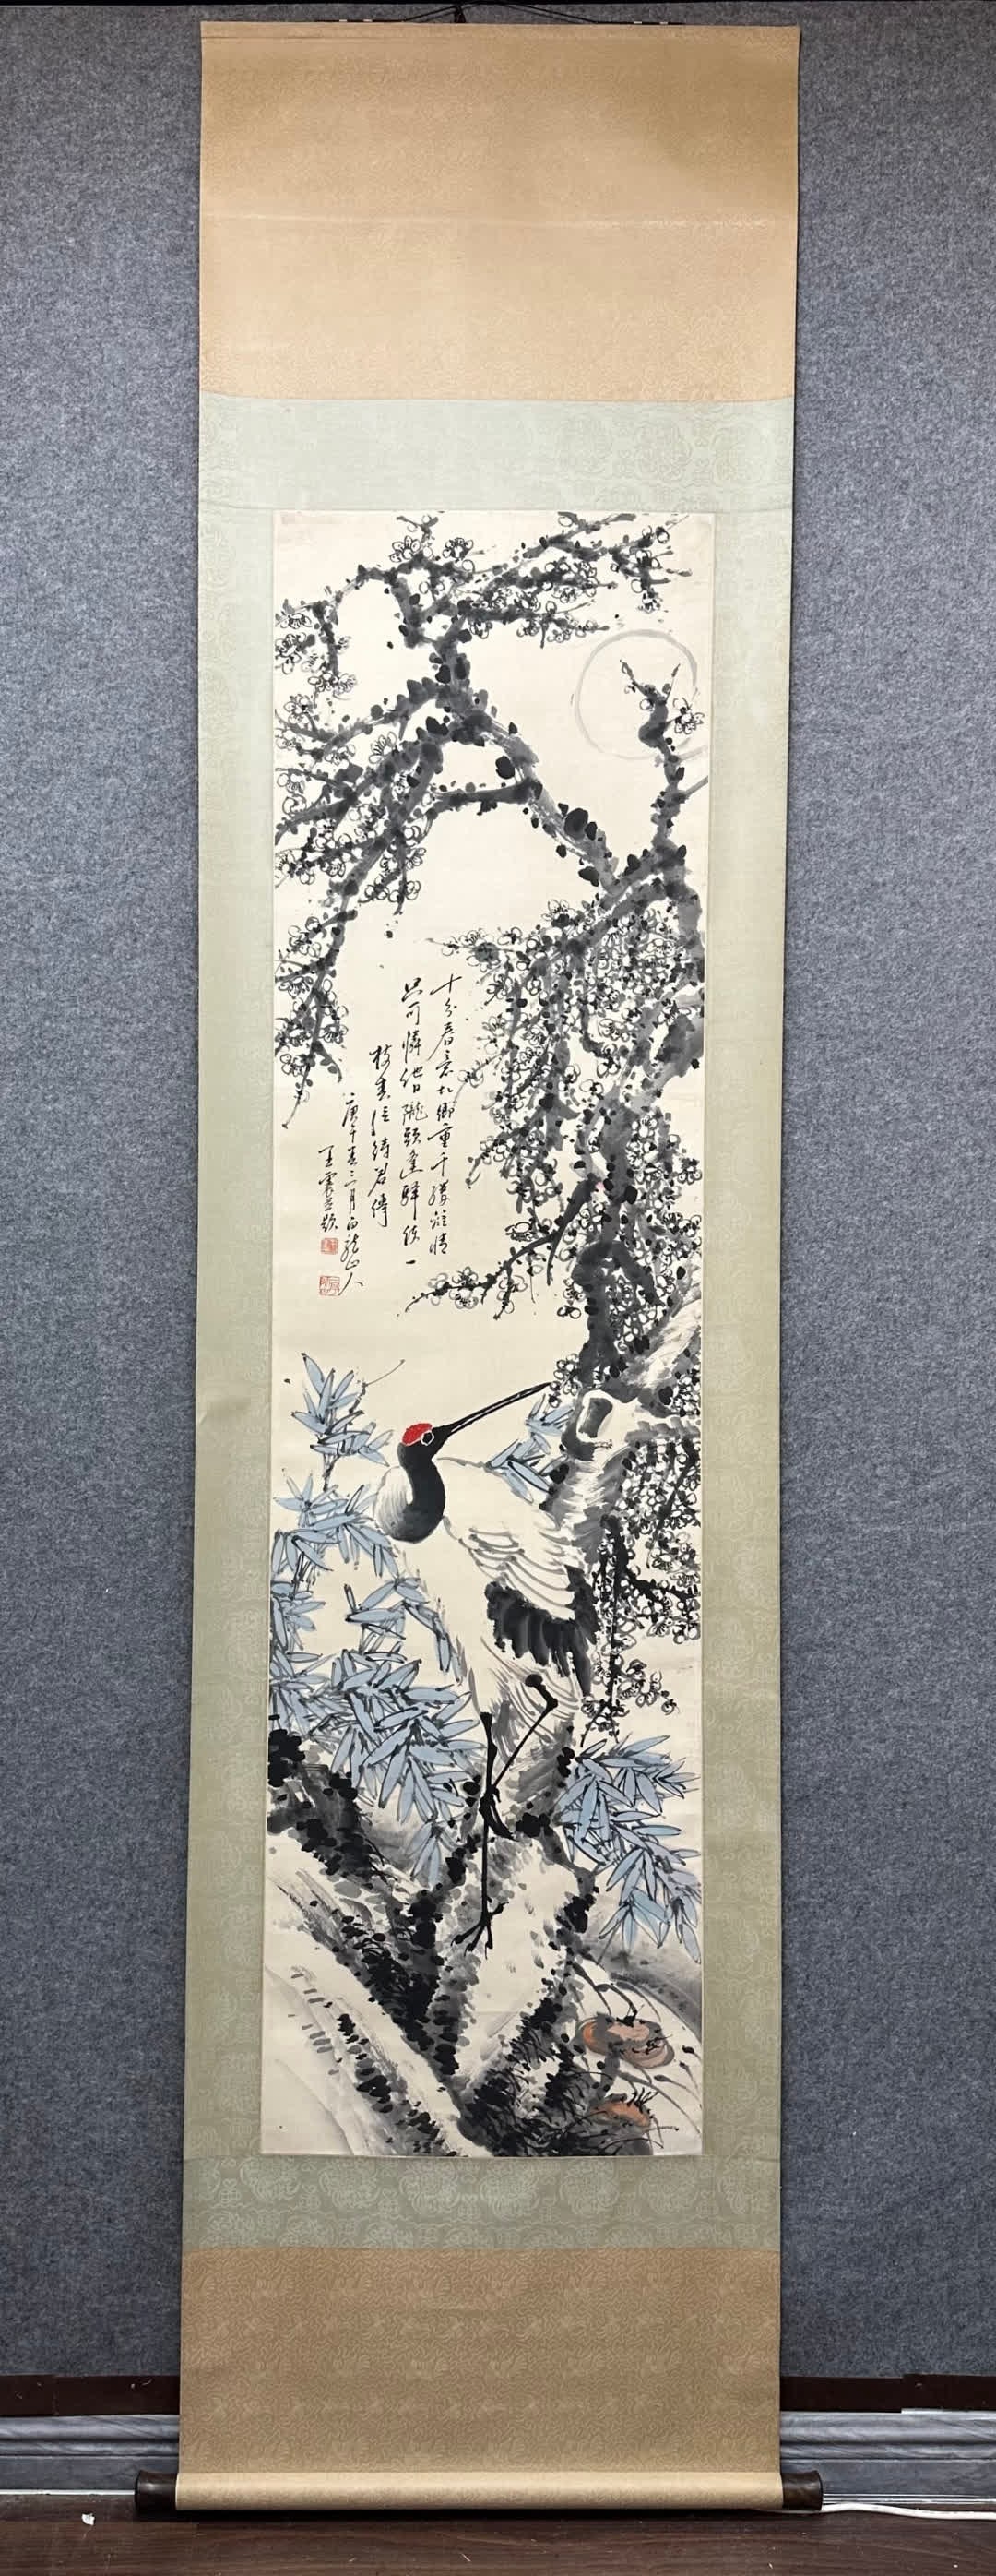 十分春意故鄉重千縷難情
只可憐他日隴頭逢驛使一
枝春信待君傳
庚午春三月白龍山人
王震並題